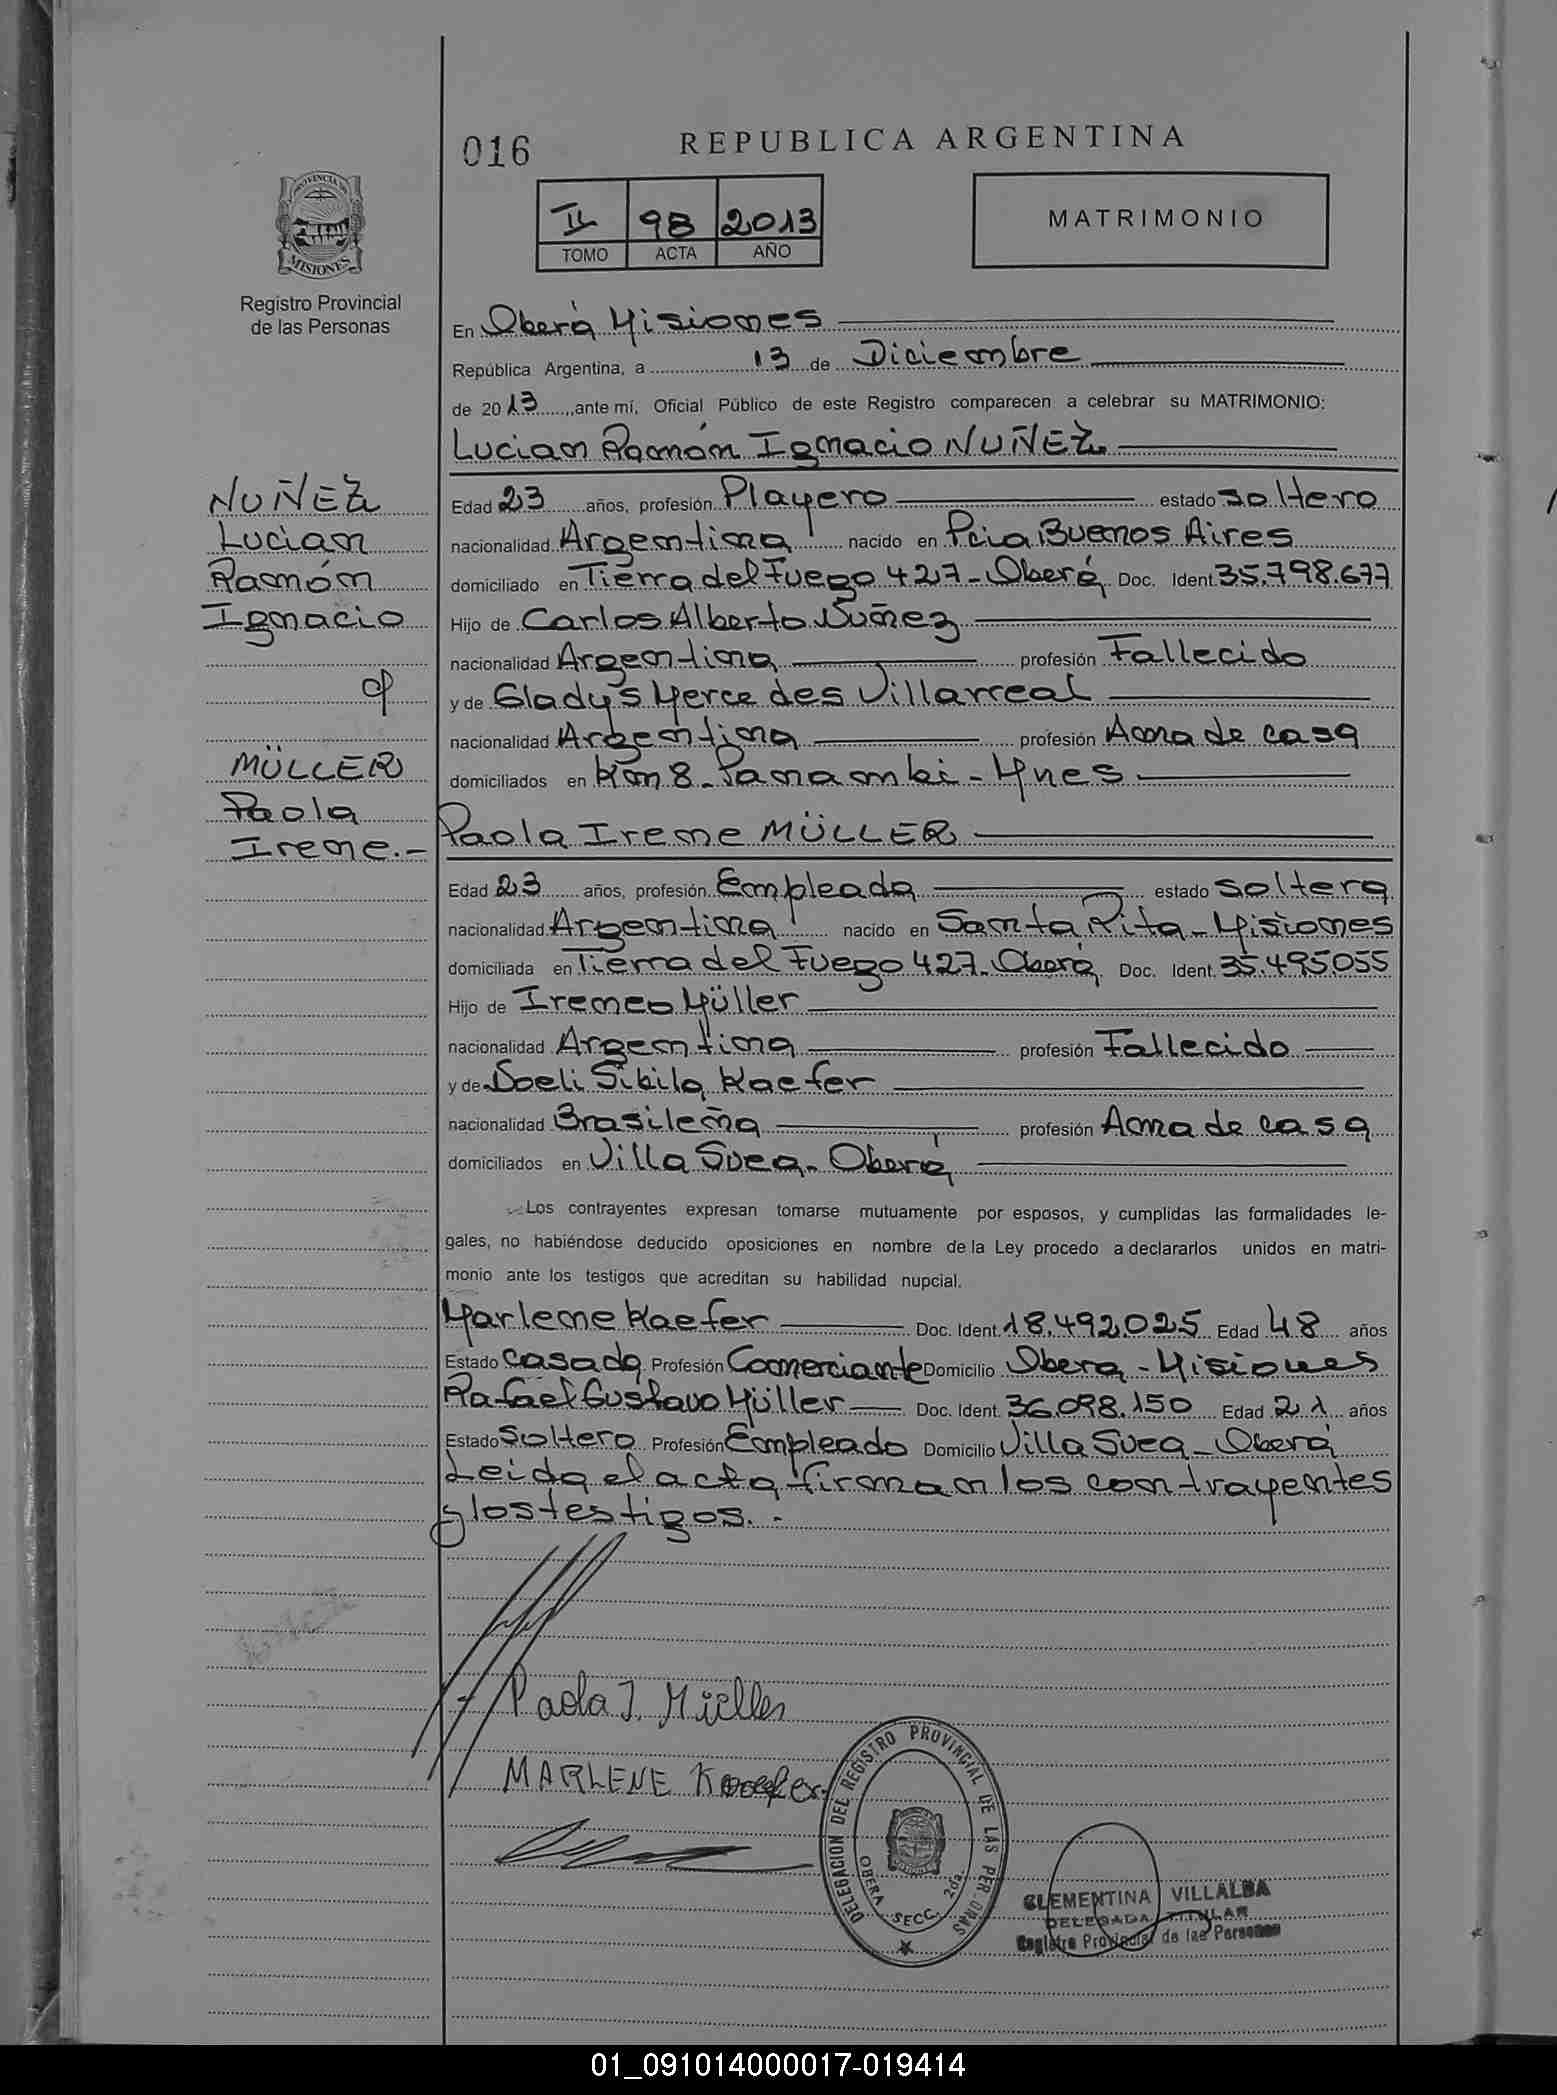 016
REPUBLICA ARGENTINA
II 98 2013
TOMO ACTA AÑO
MATRIMONIO
PROVINCIA DE
MISIONES
Registro Provincial
de las Personas
En Oberá Misiones
República Argentina, a 13 de Diciembre
de 2013, ante mí, Oficial Público de este Registro comparecen a celebrar su MATRIMONIO:
Lucian Ramón Ignacio NUÑEZ
NUÑEZ
Lucian
Ramón
Ignacio
c/
MÜLLER
Paola
Irene.-
Edad 23 años, profesión Playero estado soltero
nacionalidad Argentina nacido en Pcia Buenos Aires
domiciliado en Tierra del Fuego 427-Oberá Doc. Ident. 35.798.677
Hijo de Carlos Alberto Nuñez
nacionalidad Argentina profesión Fallecido
y de Gladys Mercedes Villarreal
nacionalidad Argentina profesión Ama de casa
domiciliados en Km 8-Panambi-Mnes
Paola Irene MÜLLER
Edad 23 años, profesión Empleada estado soltera
nacionalidad Argentina nacido en Santa Rita-Misiones
domiciliada en Tierra del Fuego 427-Oberá Doc. Ident. 35.495.055
Hijo de Ireneo Müller
nacionalidad Argentina profesión Fallecido
y de Soeli Sibila Kaefer
nacionalidad Brasileña profesión Ama de casa
domiciliados en Villa Svea-Oberá
Los contrayentes expresan tomarse mutuamente por esposos, y cumplidas las formalidades le-
gales, no habiéndose deducido oposiciones en nombre de la Ley procedo a declararlos unidos en matri-
monio ante los testigos que acreditan su habilidad nupcial.
Marlene Kaefer Doc. Ident. 18.492.025 Edad 48 años
Estado casada Profesión Comerciante Domicilio Obera-Misiones
Rafael Gustavo Müller Doc. Ident. 36.098.150 Edad 21 años
Estado Soltero Profesión Empleado Domicilio Villa Svea-Oberá
Leida el acta firman los contrayentes
y los testigos.-
Paola I. Müller
MARLENE Kaefer
DELEGACION DEL REGISTRO PROVINCIAL DE LAS PERSONAS
OBERA SECC. 2da.
CLEMENTINA VILLALBA
DELEGADA TITULAR
Registro Provincial de las Personas
01_091014000017-019414